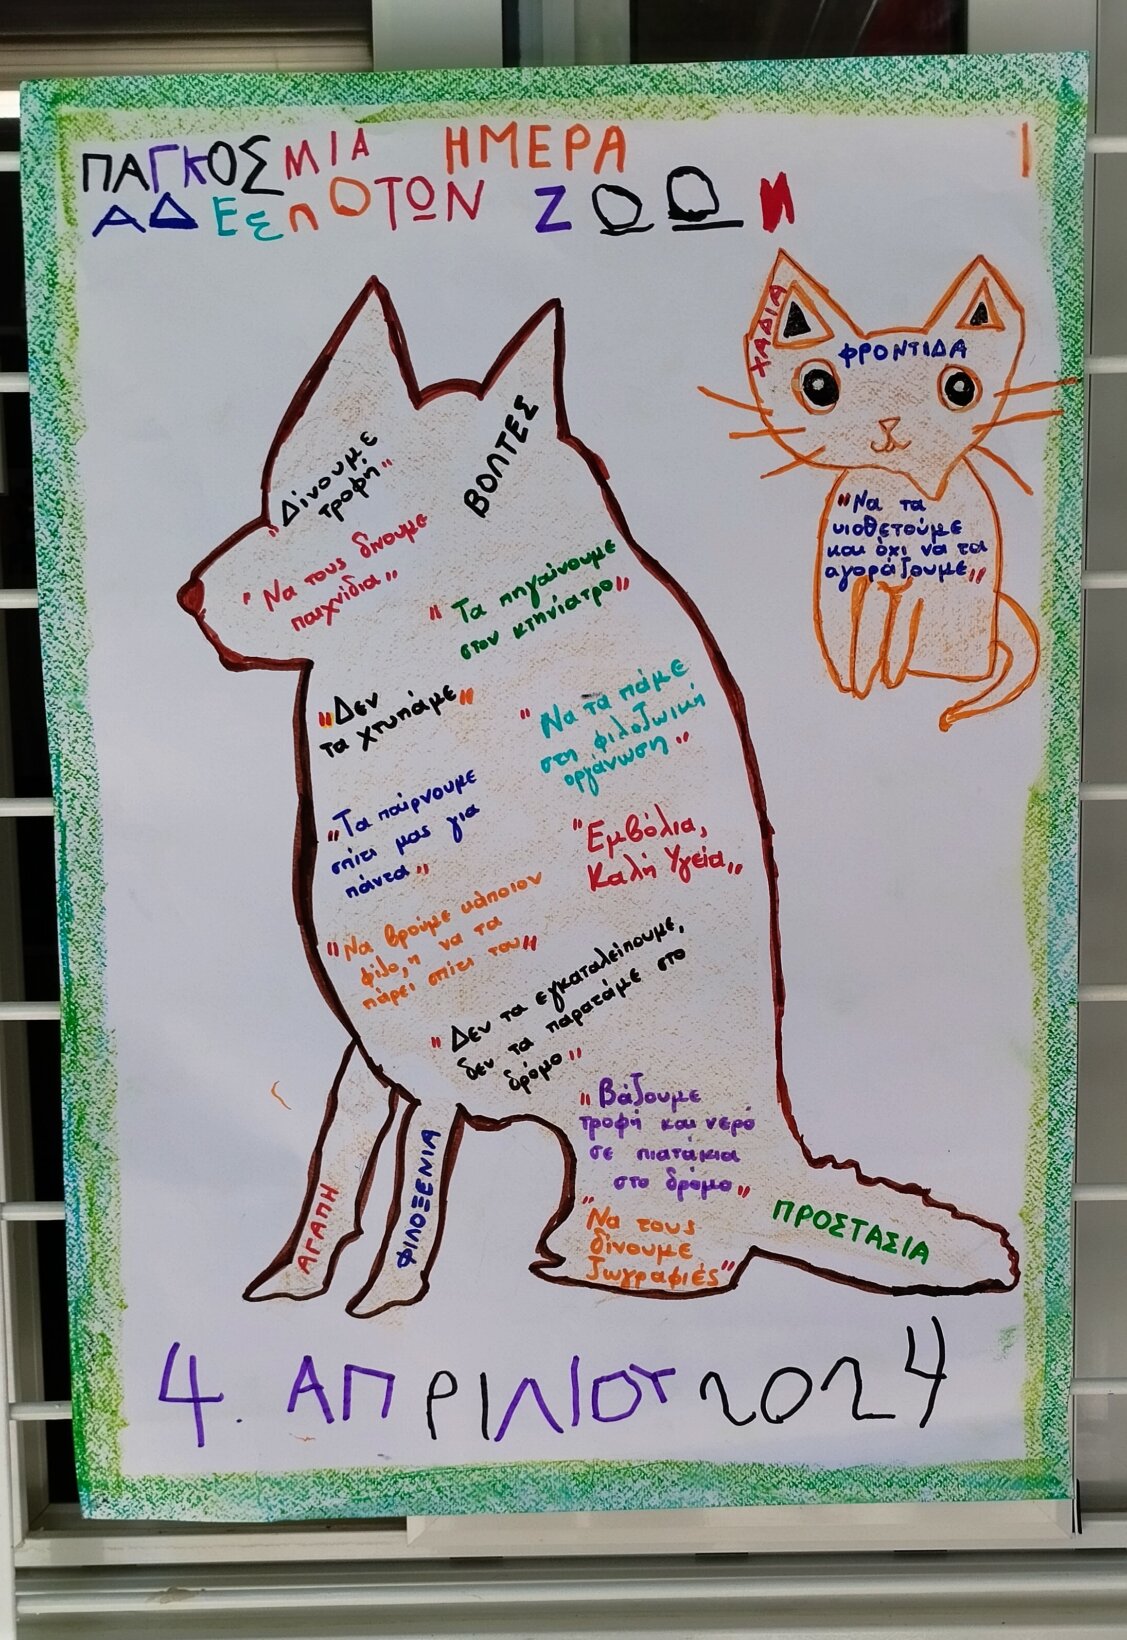 ΠΑΓΚΟΣΜΙΑ ΗΜΕΡΑ
ΑΔΕΣΠΟΤΩΝ ΖΩΩΝ
ΧΑΔΙΑ
ΦΡΟΝΤΙΔΑ
"Να τα
υιοθετούμε
και όχι να τα
αγοράζουμε"
"Δίνουμε
τροφή"
ΒΟΛΤΕΣ
"Να τους δίνουμε
παιχνίδια"
"Τα πηγαίνουμε
στον κτηνίατρο"
"Δεν
τα χτυπάμε"
"Να τα πάμε
στη φιλοζωική
οργάνωση"
"Τα παίρνουμε
σπίτι μας για
πάντα"
"Εμβόλια,
Καλή Υγεία"
"Να βρούμε κάποιον
φίλο,η να τα
πάρει σπίτι του"
"Δεν τα εγκαταλείπουμε,
δεν τα παρατάμε στο
δρόμο"
"Βάζουμε
τροφή και νερό
σε πιατάκια
στο δρόμο"
"Να τους
δίνουμε
ζωγραφιές"
ΑΓΑΠΗ
ΦΙΛΟΞΕΝΙΑ
ΠΡΟΣΤΑΣΙΑ
4. ΑΠΡΙΛΙΟΥ 2024